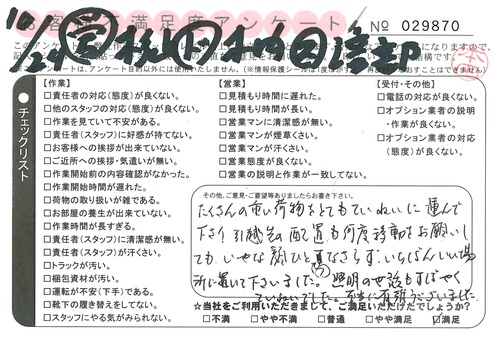 お客様満足度アンケート
№ 029870
10/24
チェックリスト
【作業】
□責任者の対応(態度)が良くない。
□他のスタッフの対応(態度)が良くない。
□作業を見ていて不安がある。
□責任者(スタッフ)に好感が持てない。
□お客様への挨拶が出来ていない。
□ご近所への挨拶・気遣いが無い。
□作業開始前の内容確認がなかった。
□作業開始時間が遅れた。
□荷物の取り扱いが雑である。
□お部屋の養生が出来ていない。
□作業時間が長すぎる。
□責任者(スタッフ)に清潔感が無い。
□責任者(スタッフ)が汗くさい。
□トラックが汚い。
□梱包資材が汚い。
□運転が不安(下手)である。
□靴下の履き替えをしてない。
□スタッフにやる気がみられない。
【営業】
□見積もり時間に遅れた。
□見積もり時間が長い。
□営業マンに清潔感が無い。
□営業マンが煙草くさい。
□営業マンが汗くさい。
□営業態度が良くない。
□営業の説明と作業が一致してない。
【受付・その他】
□電話の対応が良くない。
□オプション業者の説明
・作業が良くない。
□オプション業者の対応
(態度)が良くない。
その他、ご意見・ご要望等ありましたらお書き下さい。
たくさんの重い荷物をとてもていねいに運んで
下さり引越先の配置も何度も移動をお願いし
ても、いやな顔ひとつなさらず、いちばんいい場
所に置いて下さいました。照明の世話もすばやく
ていねいでした。本当に有難うございました
☆当社をご利用いただきまして、ご満足いただけたでしょうか?
□不満 □やや不満 □普通 □やや満足 ☑満足